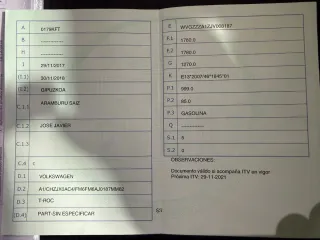 A 0179KFT
B -------------
H
I 29/11/2017
(I.1) 20/11/2018
(I.2) GIPUZKOA
C.1.1 ARAMBURU SAIZ
C.1.2 JOSE JAVIER
C.1.3
C.4 c
D.1 VOLKSWAGEN
D.2
D.3 T-ROC
(D.4) PART-SIN ESPECIFICAR
E
F.1 1760.0
F.2 1760.0
G 1270.0
K
P.1 999.0
P.2 85.0
P.3 GASOLINA
Q -------------
S.1 5
S.2 0
OBSERVACIONES:
Documento válido si acompaña ITV en vigor
Próxima ITV: 29-11-2021